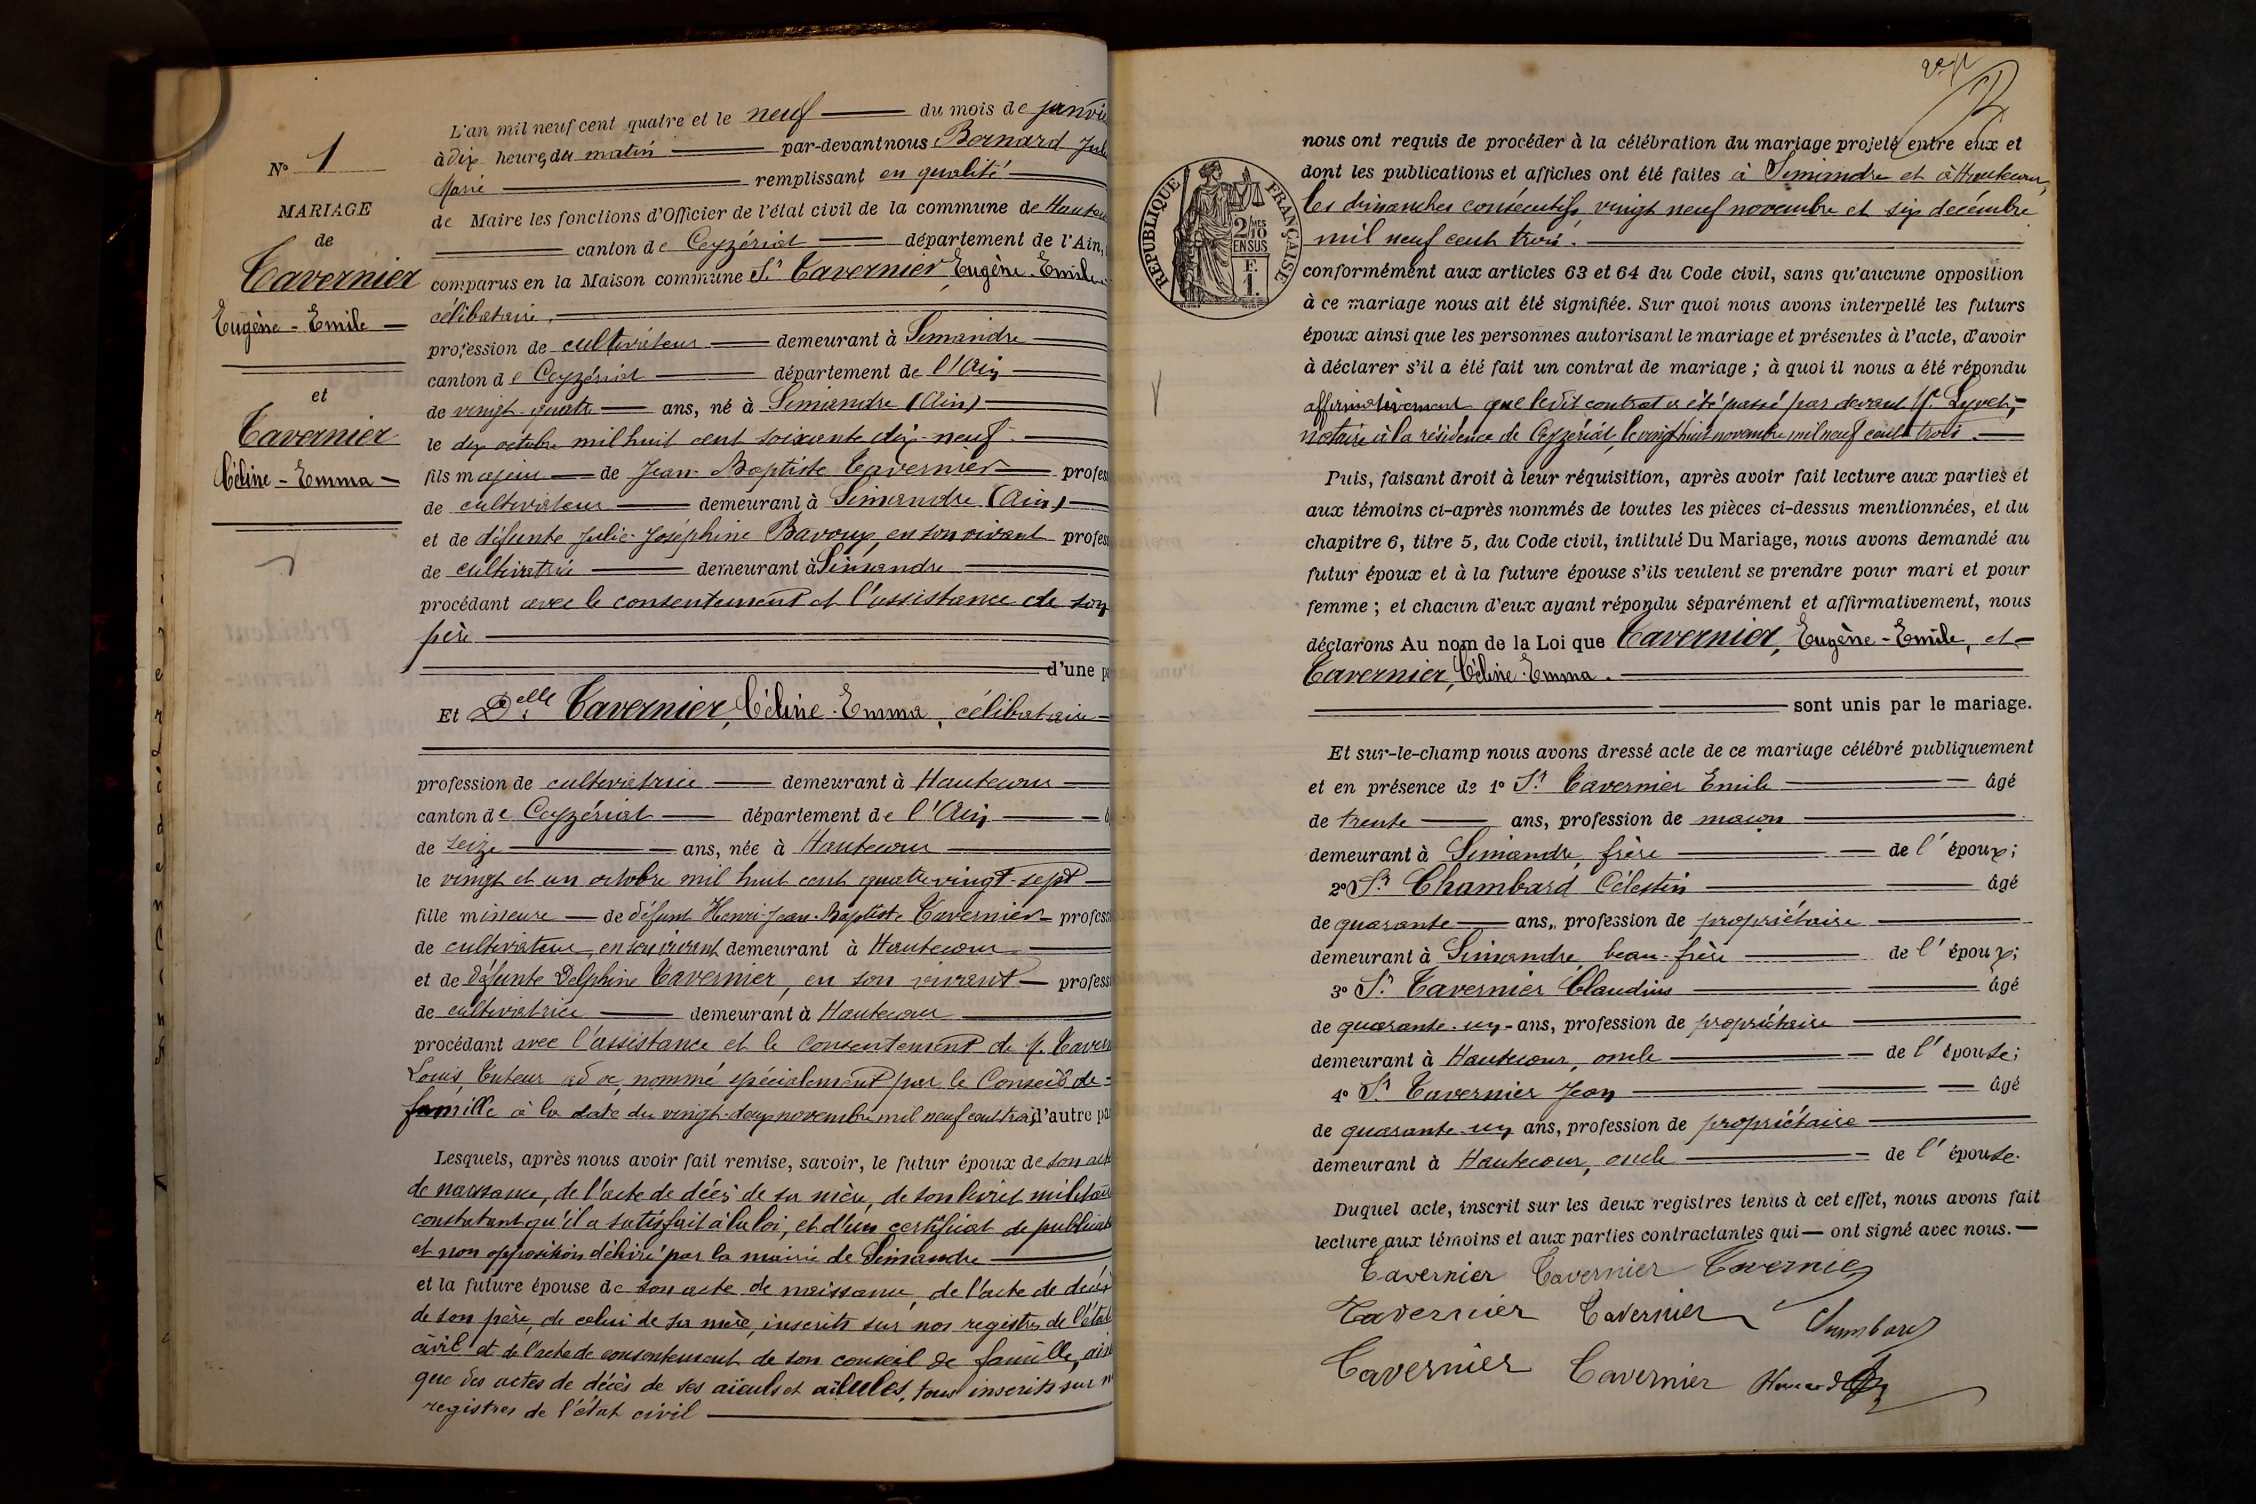 L'an mil neuf cent quatre et le neuf du mois de janvi
à dix heures du matin par-devant nous Bornard Jul
Marie remplissant en qualité
de Maire les fonctions d'Officier de l'état civil de la commune de Hauteco
canton de Ceyzériat département de l'Ain,
comparus en la Maison commune Sr Tavernier, Eugène-Emile
célibataire,
profession de cultivateur demeurant à Simandre
canton de Ceyzériat département de l'Ain
de vingt-quatre ans, né à Simandre (Ain)
le dix octobre mil huit cent soixante dix-neuf
fils majeur de Jean-Baptiste Tavernier profes
de cultivateur demeurant à Simandre (Ain)
et de défunte Julie-Joséphine Bavoux, en son vivant profes
de cultivatrice demeurant à Simandre
procédant avec le consentement et l'assistance de son
père
d'une p
Et Delle Tavernier, Céline-Emma, célibataire
profession de cultivatrice demeurant à Hautecour
canton de Ceyzériat département de l'Ain
de seize ans, née à Hautecour
le vingt et un octobre mil huit cent quatre-vingt-sept
fille mineure de défunt Henri-Jean-Baptiste Tavernier profes
de cultivateur, en son vivant demeurant à Hautecour
et de défunte Delphine Tavernier, en son vivant profess
de cultivatrice demeurant à Hautecour
procédant avec l'assistance et le consentement de M. Taver
Louis, tuteur ad oc, nommé spécialement par le Conseil de
famille à la date du vingt-deux novembre mil neuf cent trois, d'autre pa
Lesquels, après nous avoir fait remise, savoir, le futur époux de son act
de naissance, de l'acte de décès de sa mère, de son livret militair
constatant qu'il a satisfait à la loi, et d'un certificat de publicat
et non opposition délivré par la mairie de Simandre
et la future épouse de son acte de naissance, de l'acte de décès
de son père, de celui de sa mère, inscrits sur nos registres de l'état
civil et de l'acte de consentement de son conseil de famille, ains
que des actes de décès de ses aïeuls et aïeules, tous inscrits sur n
registres de l'état civil
No 1
MARIAGE
de
Tavernier
Eugène-Emile
et
Tavernier
Céline-Emma
nous ont requis de procéder à la célébration du mariage projeté entre eux et
dont les publications et affiches ont été faites à Simandre et à Hautecour,
les dimanches consécutifs, vingt neuf novembre et six décembre
mil neuf cent trois.
RÉPUBLIQUE FRANÇAISE
2/10 MES
EN SUS
F.
1.
conformément aux articles 63 et 64 du Code civil, sans qu'aucune opposition
à ce mariage nous ait été signifiée. Sur quoi nous avons interpellé les futurs
époux ainsi que les personnes autorisant le mariage et présentes à l'acte, d'avoir
à déclarer s'il a été fait un contrat de mariage ; à quoi il nous a été répondu
affirmativement que le dit contrat a été passé par devant Me
notaire à la résidence de Ceyzériat, le vingt huit novembre mil neuf cent trois.
Puis, faisant droit à leur réquisition, après avoir fait lecture aux parties et
aux témoins ci-après nommés de toutes les pièces ci-dessus mentionnées, et du
chapitre 6, titre 5, du Code civil, intitulé Du Mariage, nous avons demandé au
futur époux et à la future épouse s'ils veulent se prendre pour mari et pour
femme ; et chacun d'eux ayant répondu séparément et affirmativement, nous
déclarons Au nom de la Loi que Tavernier, Eugène-Emile, et
Tavernier, Céline-Emma.
sont unis par le mariage.
Et sur-le-champ nous avons dressé acte de ce mariage célébré publiquement
et en présence de 1o Sr Tavernier Emile âgé
de trente ans, profession de maçon
demeurant à Simandre, frère de l'époux;
2o Sr Chambard Célestin âgé
de quarante ans, profession de propriétaire
demeurant à Simandre, beau-frère de l'époux;
3o Sr Tavernier Claudius âgé
de quarante-un ans, profession de propriétaire
demeurant à Hautecour, oncle de l'épouse;
4o Sr Tavernier Jean âgé
de quarante-un ans, profession de propriétaire
demeurant à Hautecour, oncle de l'épouse.
Duquel acte, inscrit sur les deux registres tenus à cet effet, nous avons fait
lecture aux témoins et aux parties contractantes qui ont signé avec nous.
Tavernier Tavernier Tavernier
Tavernier Tavernier Chambard
Tavernier Tavernier